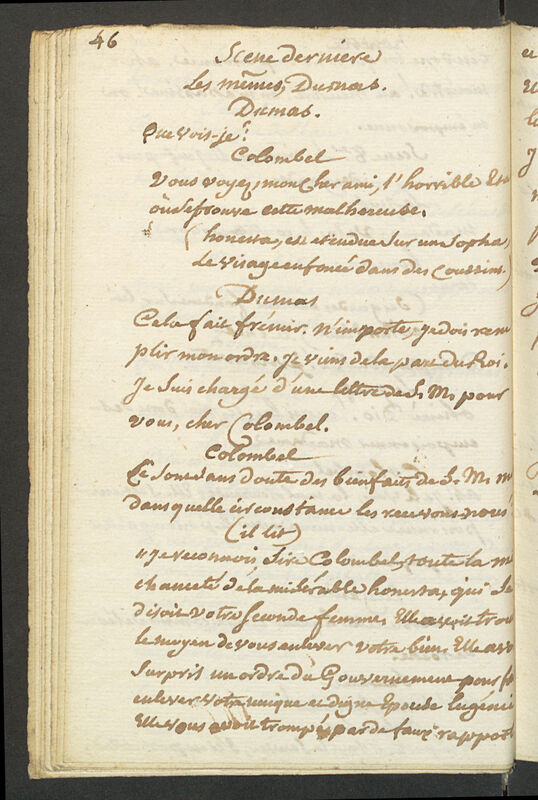 46
Scene derniere
Les mêmes, Dumas.
Dumas.
Que vois-je!
Colombel
Vous voyez, mon Cher ami, l'horrible Etat
où se trouve cette malheureuse.
(honesta, est etendue Sur un Sopha,
Le visage enfoncé dans des Coussins.)
Dumas
Cela fait frémir. n'importe, je dois rem
plir mon ordre. Je viens de la part du Roi.
Je Suis chargé d'une lettre de S. M. pour
vous, cher Colombel.
Colombel
Ce Sont Sans doute des bienfaits de S. M. m
dans quelle circonstance les recevons-nous
(il lit)
"Je reconnois, Sire Colombel, toute la m
chanceté de la misérable honesta, qui Se
disoit votre Seconde femme. Elle avoit trou
le moyen de vous enlever votre bien. Elle avo
Surpris un ordre du Gouvernement pour f
enlever votre unique et digne Epouse Eugénie
Elle vous avoit trompé par de faux rapport